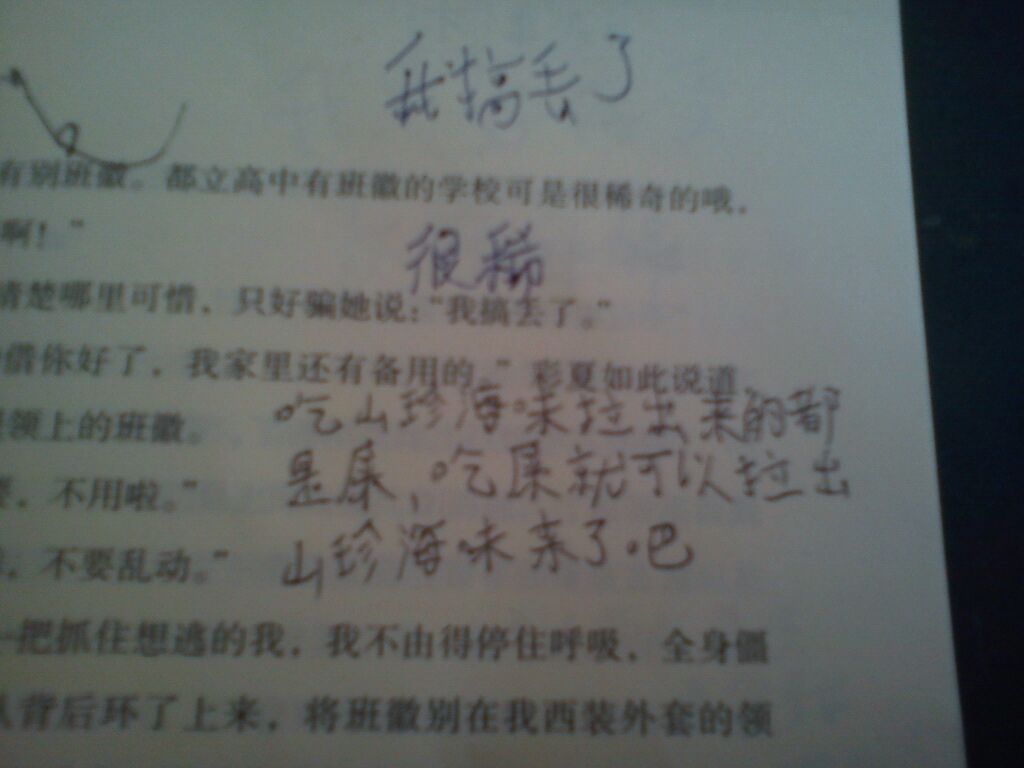 我搞丢了
有别班徽。都立高中有班徽的学校可是很稀奇的哦。
啊！”
很稀
清楚哪里可惜，只好骗她说：“我搞丢了。”
借你好了，我家里还有备用的。”彩夏如此说道
吃山珍海味拉出来的都
领上的班徽。
是屎，吃屎就可以拉出
，不用啦。”
山珍海味来了吧
，不要乱动。”
一把抓住想逃的我，我不由得停住呼吸，全身僵
从背后环了上来，将班徽别在我西装外套的领